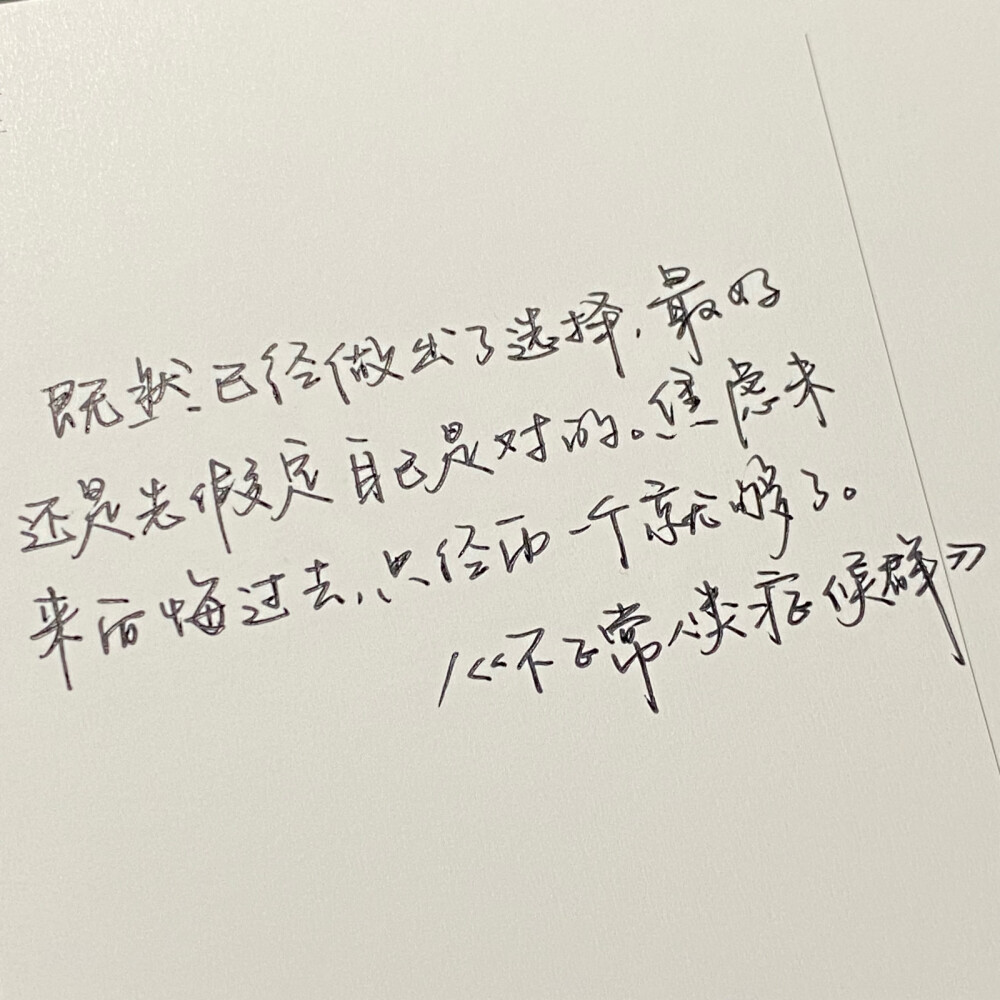 既然已经做出了选择,最好
还是先假定自己是对的。焦虑未
来后悔过去,只经历一个就够了。
/《不正常人类症候群》